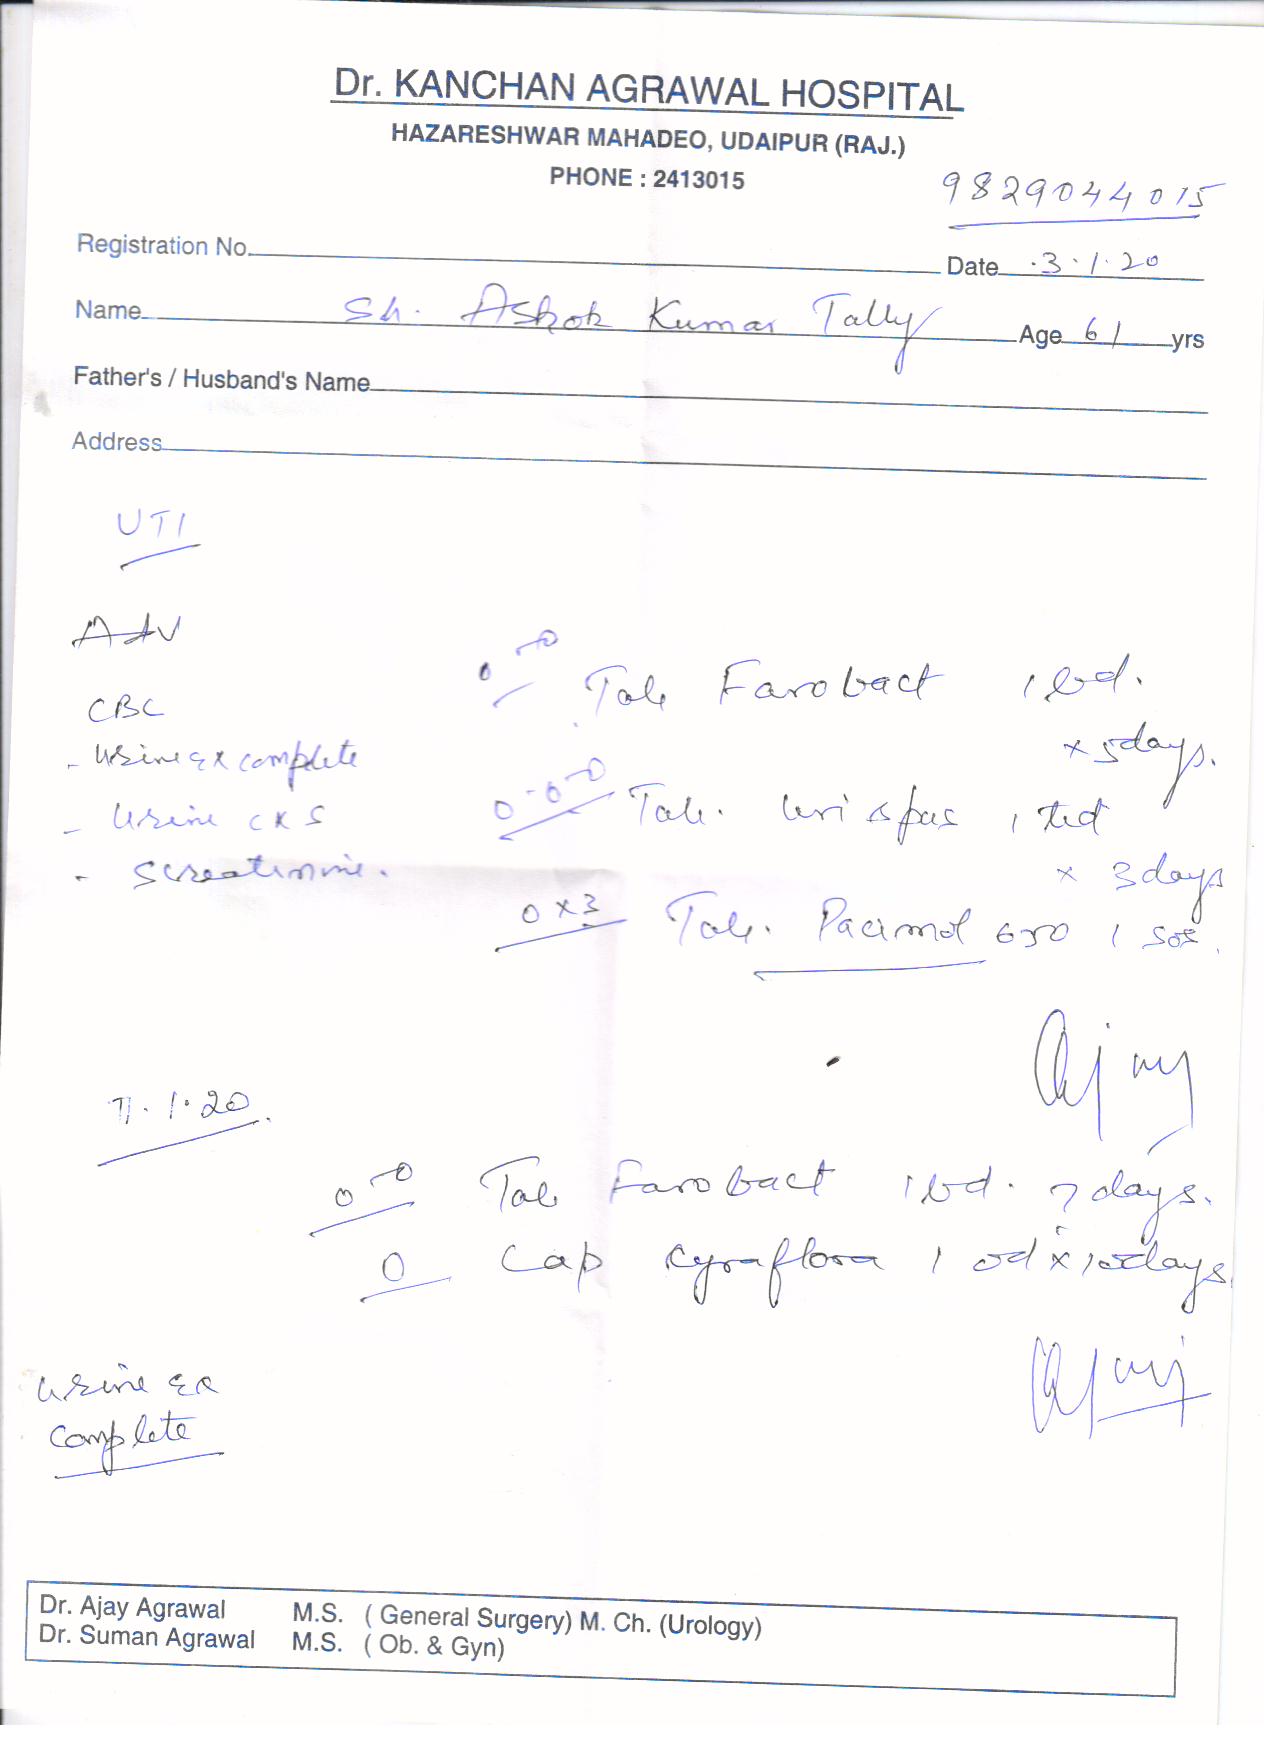 Dr. KANCHAN AGRAWAL HOSPITAL
HAZARESHWAR MAHADEO, UDAIPUR (RAJ.)
PHONE : 2413015
9829044015
Registration No.
Date 3.1.20
Name Sh. Ashok Kumar Tally Age 61 yrs
Father's / Husband's Name
Address
UTI
Adv
CBC
0-0 Tab Farobact 1 bd.
x 5days.
- Urine Ex complete
0-0-0 Tab. Urispas 1 tid
- Urine C & S
x 3days
- S creatinine.
0 x 3 Tab. Pacimol 650 1 sos.
Ajay
7.1.20
0-0 Tab Farobact 1 bd. 7days.
0 Cap Gyraflora 1 od x 10days.
Ajay
Urine Ex
Complete
Dr. Ajay Agrawal M.S. ( General Surgery) M. Ch. (Urology)
Dr. Suman Agrawal M.S. ( Ob. & Gyn)